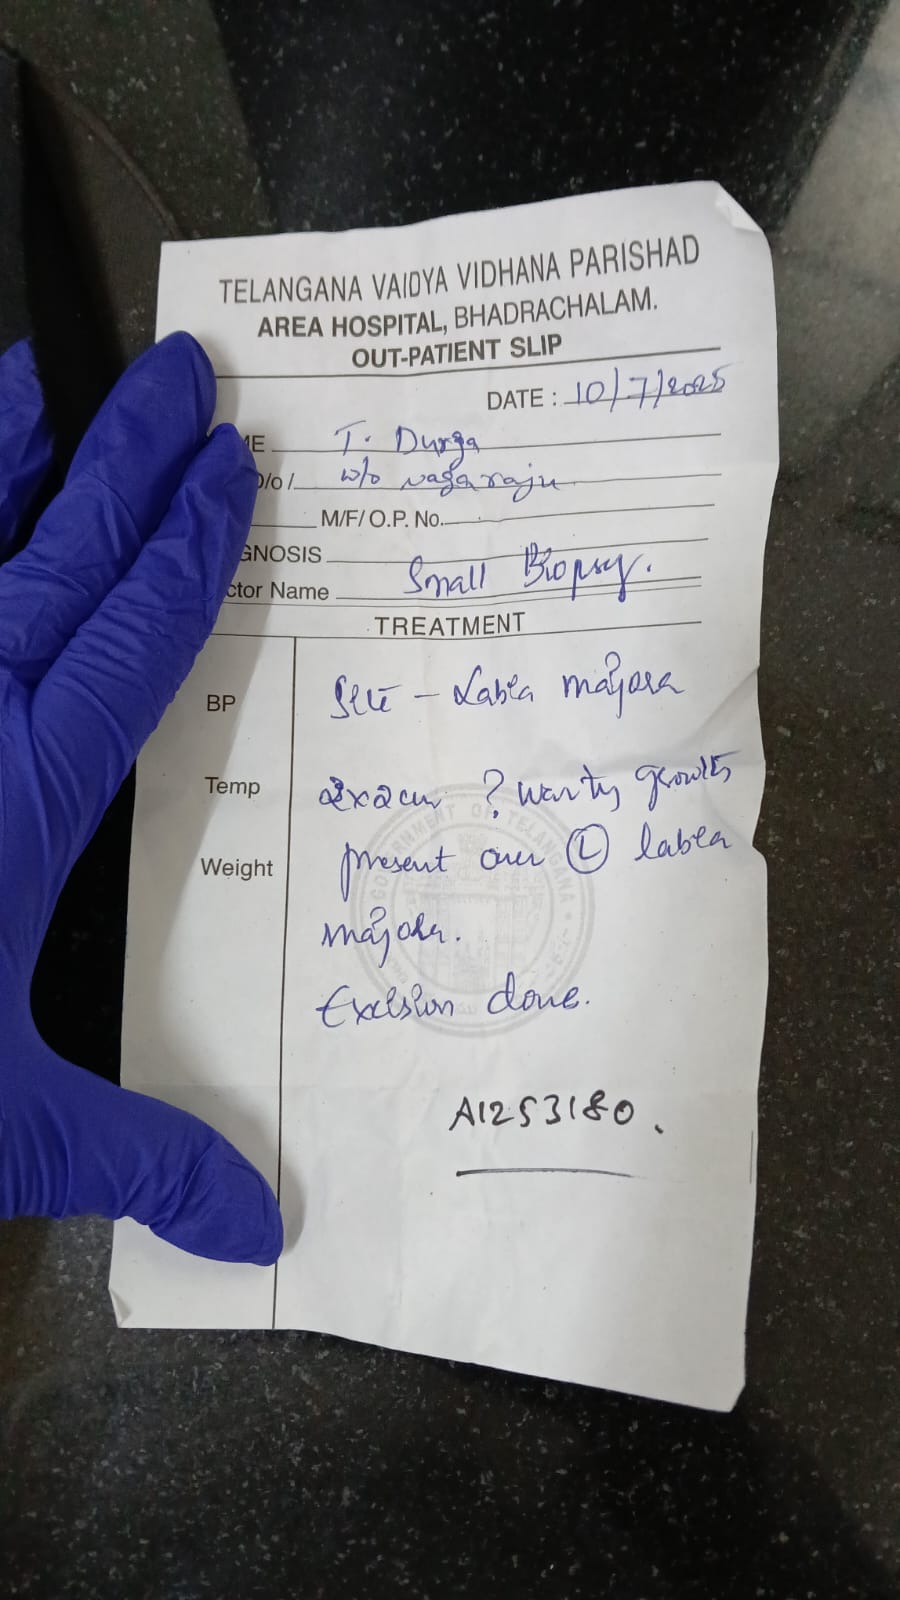 TELANGANA VAIDYA VIDHANA PARISHAD
AREA HOSPITAL, BHADRACHALAM.
OUT-PATIENT SLIP
DATE : 10/7/2025
ME T. Durga
D/o/ w/o Nagaraju
M/F/ O.P. No.
GNOSIS
Small Biopsy.
ctor Name
TREATMENT
BP
Site - Labia majora
Temp
2x2cm ? warty growth
Weight
present over (L) labia
majora.
Excision done.
A1253180.
GOVERNMENT OF TELANGANA